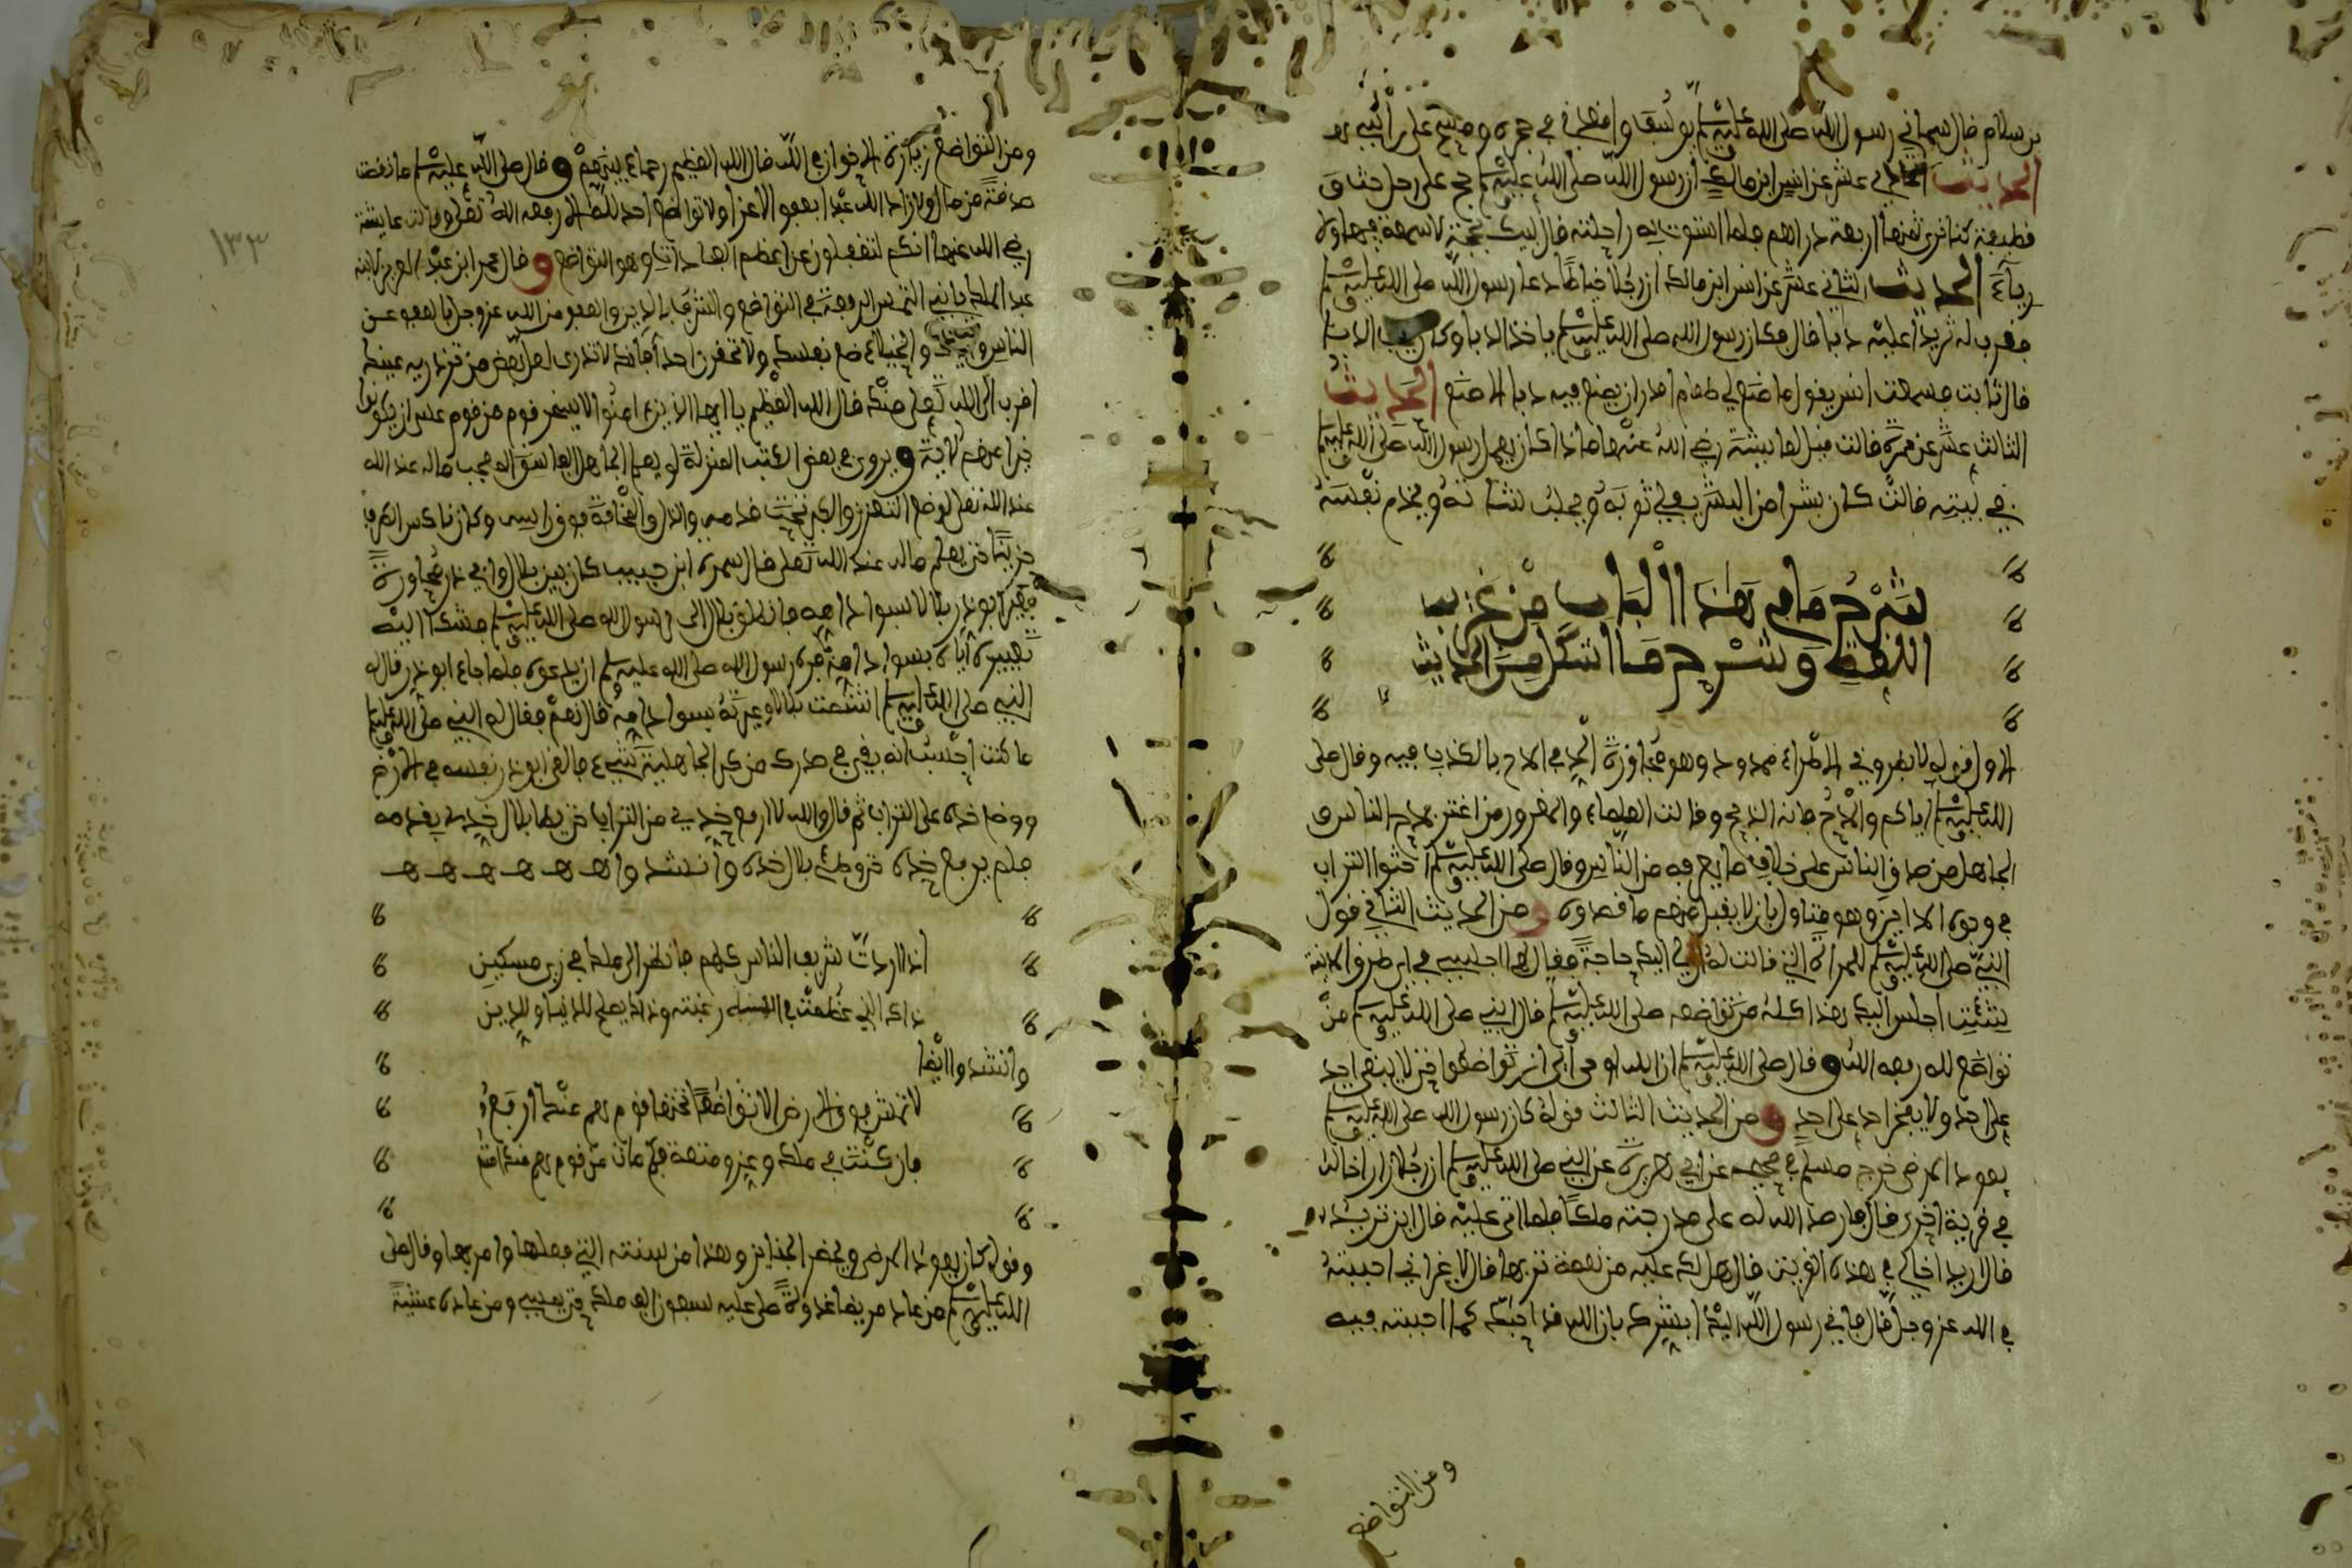 بن سلام قال سماني رسول الله صلى الله عليه وسلم يوسف واقعدني في حجره ومسح على رأسي
الحديث الحادي عشر عن انس ابن مالك أن رسول الله صلى الله عليه وسلم حج على رحل رث و
قطيفة كنا نرى ثمنها اربعة دراهم فلما استوت به راحلته قال لبيك بحجة لا سمعة فيها ولا
رياء الحديث الثاني عشر عن انس ابن مالك ان رجلا خياطا دعا رسول الله صلى الله عليه وسلم
فقرب له ثريدا عليه دبا قال فكان رسول الله صلى الله عليه وسلم ياخذ الدبا وكان يحب الدبا
قال ثابت فسمعت انس يقول ما صنع لي طعام اقدر ان يصنع فيه دبا الا صنع الحديث
الثالث عشر عن عمرة قالت قيل لعايشة رضي الله عنها ماذا كان يعمل رسول الله صلى الله عليه وسلم
في بيته قالت كان بشرا من البشر يفلي ثوبه ويحلب شاته ويخدم نفسه
شرح ما في هذا الباب من غريب
اللفظ وشرح ما اشكل من الحديث
الاول قوله لا تطروني الاطراء ممدود وهو مجاوزة الحد في المدح بالكذب فيه وقال صلى
الله عليه وسلم اياكم والمدح فانه الذبح وقالت العلماء والمغرور من اغتر بمدح الناس و
الجاهل من صدق الناس على خلاف ما يعرفه من النفس وقال صلى الله عليه وسلم احثوا التراب
في وجوه المداحين وهو متاول بان لا يقبل منهم ما قصدوه ومن الحديث الثاني قول
النبي صلى الله عليه وسلم للمراة التي قالت له ان لي اليك حاجة فقال لها اجلسي في اي طرق المدينة
شئت اجلس اليك هذا كله من تواضعه صلى الله عليه وسلم قال النبي صلى الله عليه وسلم من
تواضع لله رفعه الله وقال صلى الله عليه وسلم ان الله اوحى الي ان تواضعوا حتى لا يبغي احد
على احد ولا يفخر احد على احد ومن الحديث الثالث قوله كان رسول الله صلى الله عليه وسلم
يعود المرضى خرج مسلم في صحيحه عن ابي هريرة عن النبي صلى الله عليه وسلم ان رجلا زار اخا له
في قرية اخرى قال فارصد الله له على مدرجته ملكا فلما اتى عليه قال اين تريد
قال اريد اخا لي في هذه القرية قال هل لك عليه من نعمة تربها قال لا غير اني احببته
في الله عز وجل قال فاني رسول الله اليك ابشرك بان الله قد احبك كما احببته فيه
ومن التواضع
ومن التواضع زيارة الاخوان في الله قال الله العظيم رحماء بينهم وقال صلى الله عليه وسلم ما نقصت
صدقة من مال ولا زاد الله عبدا بعفو الا عزا ولا تواضع احد لله الا رفعه الله تعلى وقالت عايشة
رضي الله عنها انكم لتغفلون عن اعظم العبادات وهو التواضع وقال عمر ابن عبد العزيز لابنه
عبد الملك يا بني التمس الرفعة في التواضع والشرف بالدين والعفو من الله عز وجل بالعفو عن
الناس والخيلاء ضع نفسك ولا تحقرن احدا فانك لا تدري لعل بعض من تزدريه عينك
اقرب الى الله تعلى منك قال الله العظيم يا ايها الذين امنوا لا يسخر قوم من قوم عسى ان يكونوا
خيرا منهم الاية ويروى في بعض الكتب المنزلة لو يعلم الجاهل الفاسق المعجب ماله عند الله
عند الله تعلى لوضع التعزز والكبر تحت قدميه والذل والمخافة فوق راسه وكان ناكس الطرف
حزينا حتى يعلم ماله عند الله تعلى قال سمرة ابن حبيب كان بين بلال وابي ذر محاورة
فعير ابو ذر بلالا بسواد امه فانطلق بلال الى رسول الله صلى الله عليه وسلم فشكا اليه
تعييره اياه بسواد امه فامره رسول الله صلى الله عليه وسلم ان يدعوه فلما جاء ابو ذر قال له
النبي صلى الله عليه وسلم اشتمت بلالا وعيرته بسواد امه قال نعم فقال له النبي صلى الله عليه وسلم
ما كنت احسب انه بقي في صدرك من كبر الجاهلية شيء فالقى ابو ذر نفسه في الارض
ووضع خده على التراب ثم قال والله لا ارفع خدي من التراب حتى يطا بلال خدي بقدمه
فلم يرفع خده حتى وطئ بلال خده وانشدوا
اذا اردت شريف الناس كلهم فانظر الى ملك في زي مسكين
ذاك الذي عظمت في الله رغبته وذاك يصلح للدنيا وللدين
وانشدوا ايضا
لا تمش فوق الارض الا تواضعا تحتها قوم هم منك ارفع
فان كنت في ملك وعز ومنعة فكم مات من قوم هم منك امنع
وقوله كان يعود المرضى ويحضر الجنايز وهذا من سنته التي فعلها وامر بها وقال صلى
الله عليه وسلم من عاد مريضا غدوة صلى عليه سبعون الف ملك حتى يمسي ومن عاده عشية
١٣٣